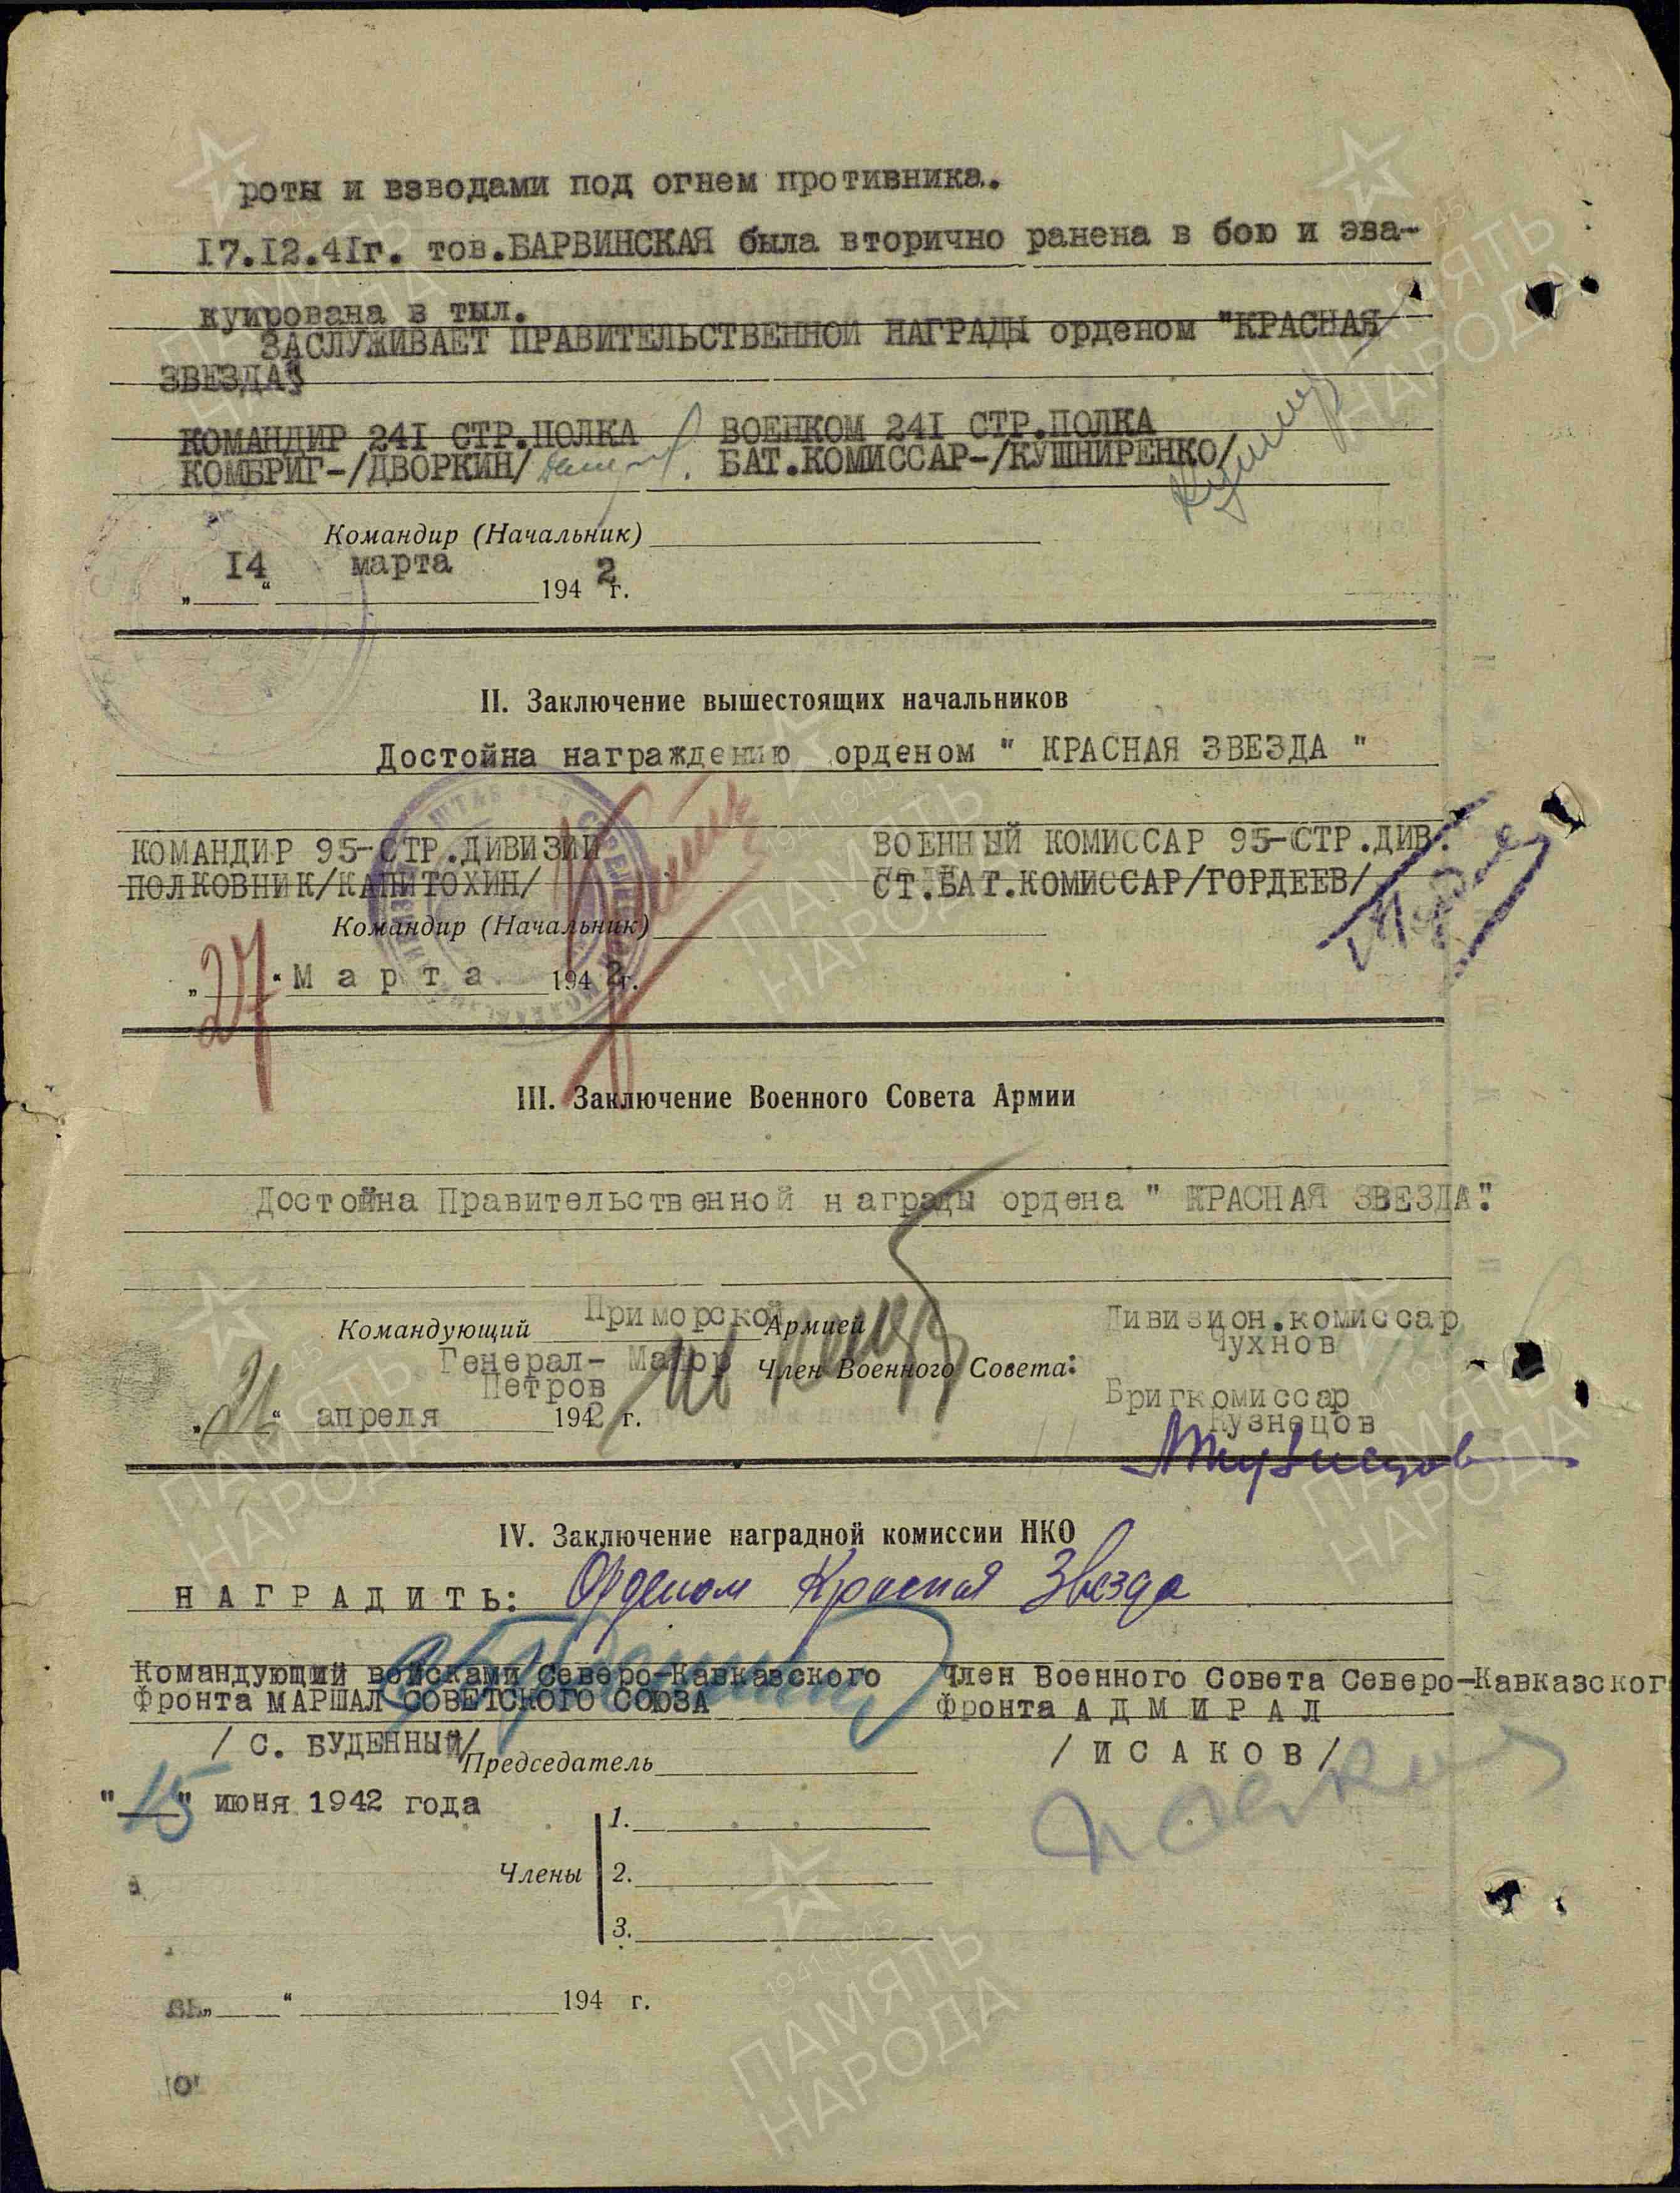 роты и взводами под огнем противника.
17.12.41г. тов.БАРВИНСКАЯ была вторично ранена в бою и эва-
куирована в тыл.
ЗАСЛУЖИВАЕТ ПРАВИТЕЛЬСТВЕННОЙ НАГРАДЫ орденом "КРАСНАЯ
ЗВЕЗДА"
КОМАНДИР 241 СТР.ПОЛКА ВОЕНКОМ 241 СТР.ПОЛКА
КОМБРИГ-/ДВОРКИН/ БАТ.КОМИССАР-/КУШНИРЕНКО/
Командир (Начальник)
„14“ марта 1942 г.
II. Заключение вышестоящих начальников
Достойна награждению орденом " КРАСНАЯ ЗВЕЗДА "
КОМАНДИР 95-СТР.ДИВИЗИИ ВОЕННЫЙ КОМИССАР 95-СТР.ДИВ.
ПОЛКОВНИК/КАПИТОХИН/ СТ.БАТ.КОМИССАР/ГОРДЕЕВ/
Командир (Начальник)
„27“ Марта 1942 г.
III. Заключение Военного Совета Армии
Достойна Правительственной награды ордена " КРАСНАЯ ЗВЕЗДА".
Командующий Приморской Армией Дивизион.комиссар
Чухнов
Генерал- Майор Член Военного Совета:
Петров Бригкомиссар
„21“ апреля 1942 г. Кузнецов
IV. Заключение наградной комиссии НКО
НАГРАДИТЬ: Орденом Красная Звезда
Командующий войсками Северо-Кавказского Член Военного Совета Северо-Кавказског
Фронта МАРШАЛ СОВЕТСКОГО СОЮЗА Фронта АДМИРАЛ
/ С. БУДЕННЫЙ/ Председатель / ИСАКОВ/
"15" июня 1942 года
1.
Члены 2.
3.
„ “ 194 г.
ПАМЯТЬ НАРОДА
1941-1945